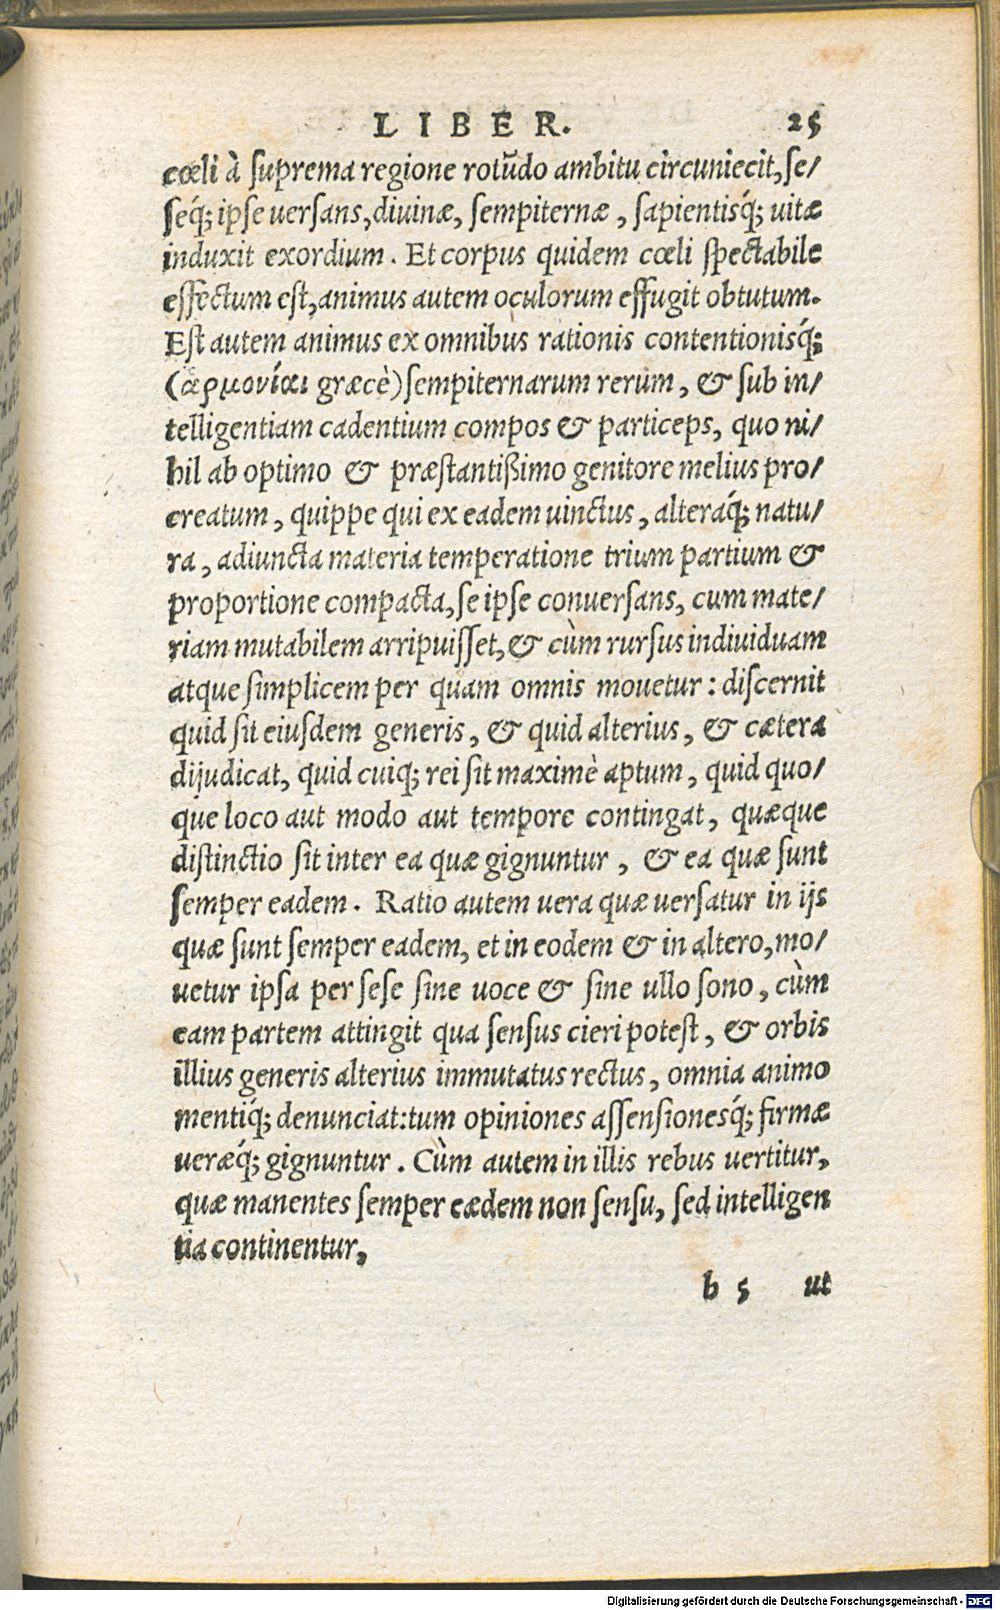 LIBER. 25
cœli à suprema regione rotūdo ambitu circuniecit, se/
seq́; ipse uersans, diuinæ, sempiternæ, sapientisq́; uitæ
induxit exordium. Et corpus quidem cœli spectabile
effectum est, animus autem oculorum effugit obtutum.
Est autem animus ex omnibus rationis contentionisq́;
(ἁρμονίαι græcè) sempiternarum rerum, & sub in/
telligentiam cadentium compos & particeps, quo ni/
hil ab optimo & præstantißimo genitore melius pro/
creatum, quippe qui ex eadem uinctus, alteraq́; natu/
ra, adiuncta materia temperatione trium partium &
proportione compacta, se ipse conuersans, cum mate/
riam mutabilem arripuisset, & cùm rursus indiuiduam
atque simplicem per quam omnis mouetur: discernit
quid sit eiusdem generis, & quid alterius, & cætera
dijudicat, quid cuiq; rei sit maximè aptum, quid quo/
que loco aut modo aut tempore contingat, quæque
distinctio sit inter ea quæ gignuntur, & ea quæ sunt
semper eadem. Ratio autem uera quæ uersatur in ijs
quæ sunt semper eadem, et in eodem & in altero, mo/
uetur ipsa per sese sine uoce & sine ullo sono, cùm
eam partem attingit qua sensus cieri potest, & orbis
illius generis alterius immutatus rectus, omnia animo
mentiq́; denunciat: tum opiniones assensionesq́; firmæ
ueræq́; gignuntur. Cùm autem in illis rebus uertitur,
quæ manentes semper eædem non sensu, sed intelligen
tia continentur,
b 5 ut
Digitalisierung gefördert durch die Deutsche Forschungsgemeinschaft - DFG